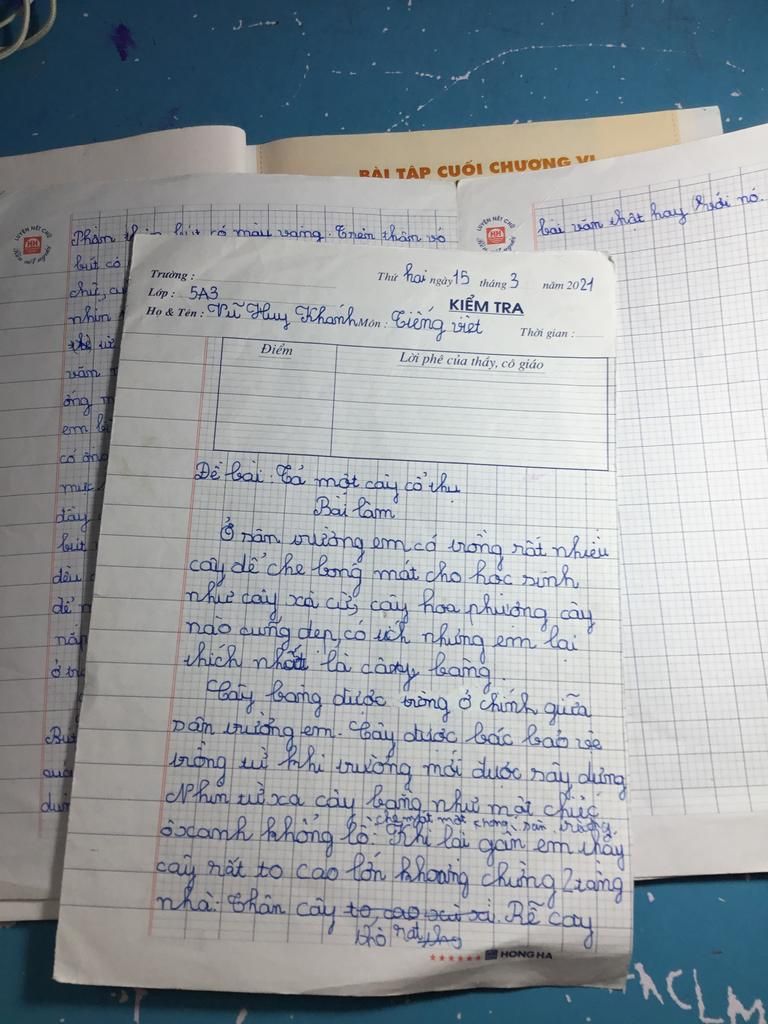 BÀI TẬP CUỐI CHƯƠNG VI
LUYỆN NÉT CHỮ
HH
Phần thân bút có màu vàng. Trên thân vỏ
bút có
chữ, c
nhìn
văn
ông
em b
có ông
mực
đầy
bút
đều
để
nắp
ở tr
Bút
cuộ
dùn
LUYỆN NÉT CHỮ
HH
bài văn thật hay với nó.
Trường :
Thứ hai ngày 15 tháng 3 năm 2021
Lớp : 5A3
KIỂM TRA
Họ & Tên : Vũ Huy Khánh Môn : Tiếng việt
Thời gian :
Điểm
Lời phê của thầy, cô giáo
Đề bài : Tả một cây cổ thụ
Bài làm
Ở sân trường em có trồng rất nhiều
cây để che bóng mát cho học sinh
như cây xà cừ, cây hoa phượng cây
nào cũng đẹp, có ích nhưng em lại
thích nhất là cây bàng.
Cây bàng được trồng ở chính giữa
sân trường em. Cây được bác bảo vệ
trồng từ khi trường mới được xây dựng
Nhìn từ xa cây bàng như một chiếc
che mát một sân trường
ô xanh khổng lồ. Khi lại gần em thấy
cây rất to cao lớn khoảng chừng 2 tầng
nhà. Thân cây to, cao xù xì. Rễ cây
thô rất
HONG HA
ACLM